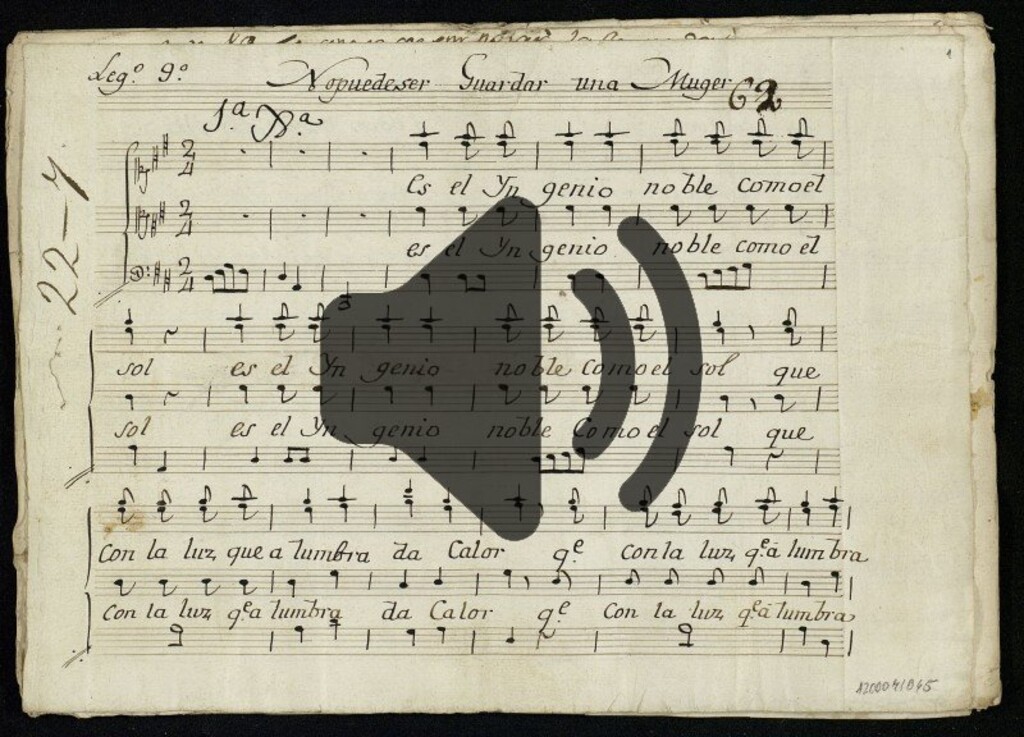 Legº 9º Nopuedeser Guardar una Muger 62
1ª Xª
22-7
Es el Yn genio noble comoel
es el Yn genio noble como el
sol es el Yn genio noble Comoel sol que
sol es el Yn genio noble Comoel sol que
Con la luz que a lumbra da Calor qᵉ con la luz qᵉ a lumbra
Con la luz qᵉ a lumbra da Calor qᵉ Con la luz qᵉ a lumbra
1200041045